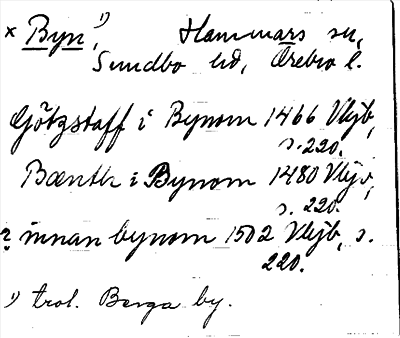 × Byn, ¹) Hammars sn,
Sundbo hd, Örebro l.
Götzstaff i Bynom 1466 Vkjb,
s. 220.
Bænth i Bynom 1480 Vkjb,
s. 220.
? innan bynom 1502 Vkjb, s.
220.
¹) trol. Berga by.